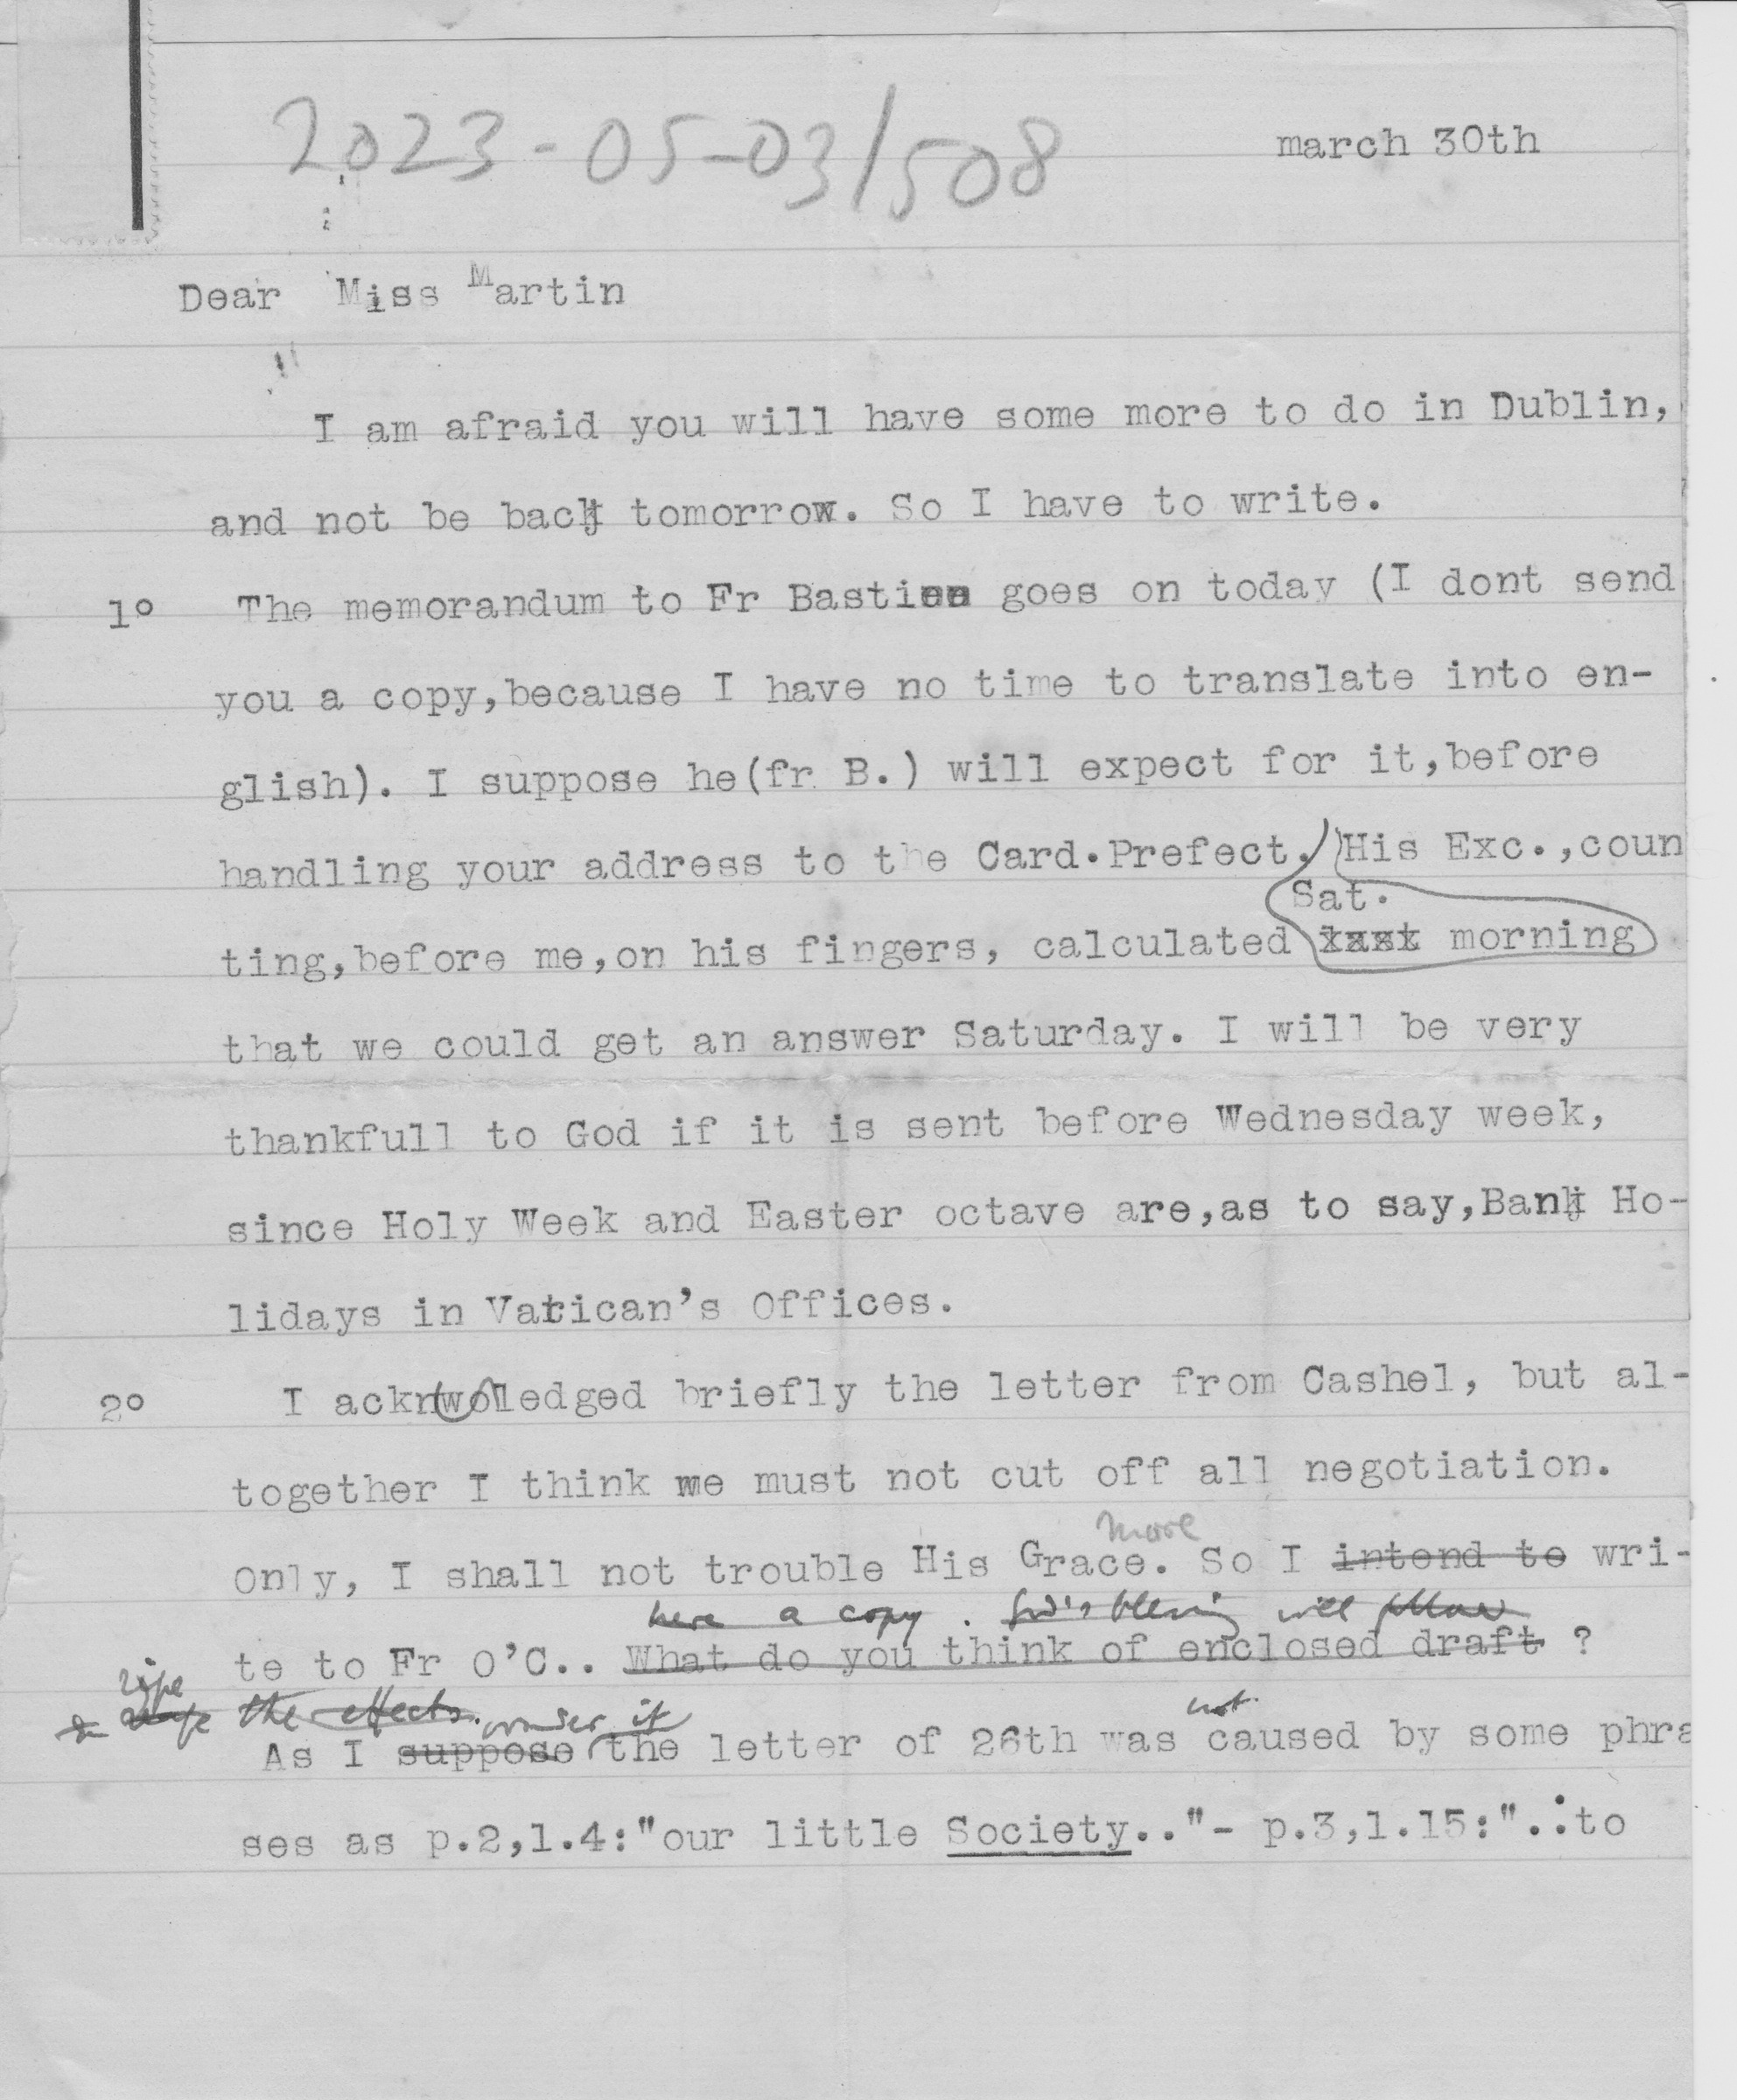 2023-05-03/508
march 30th
Dear Miss Martin
I am afraid you will have some more to do in Dublin,
and not be back tomorrow. So I have to write.
1º The memorandum to Fr Bastien goes on today (I dont send
you a copy,because I have no time to translate into en-
glish). I suppose he(fr B.) will expect for it,before
handling your address to the Card.Prefect. His Exc.,coun
Sat.
ting,before me,on his fingers, calculated last morning
that we could get an answer Saturday. I will be very
thankfull to God if it is sent before Wednesday week,
since Holy Week and Easter octave are,as to say,Bank Ho-
lidays in Vatican's Offices.
2º I acknwoledged briefly the letter from Cashel, but al-
together I think we must not cut off all negotiation.
more
Only, I shall not trouble His Grace. So I intend to wri-
here a copy. God's blessing will follow
te to Fr O'C.. What do you think of enclosed draft ?
ripe
& the effects. wonder if not
As I suppose the letter of 26th was caused by some phra
ses as p.2,l.4:"our little Society.."- p.3,l.15:"..to